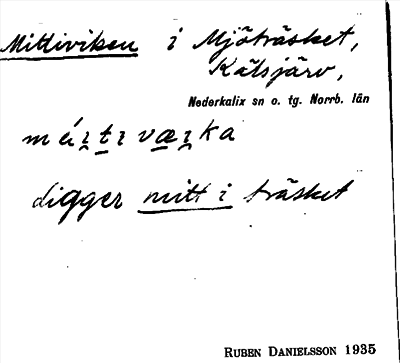 Mittiviken i Mjöträsket,
Kälsjärv,
Nederkalix sn o. tg. Norrb. län
digger mitt i träsket
RUBEN DANIELSSON 1935